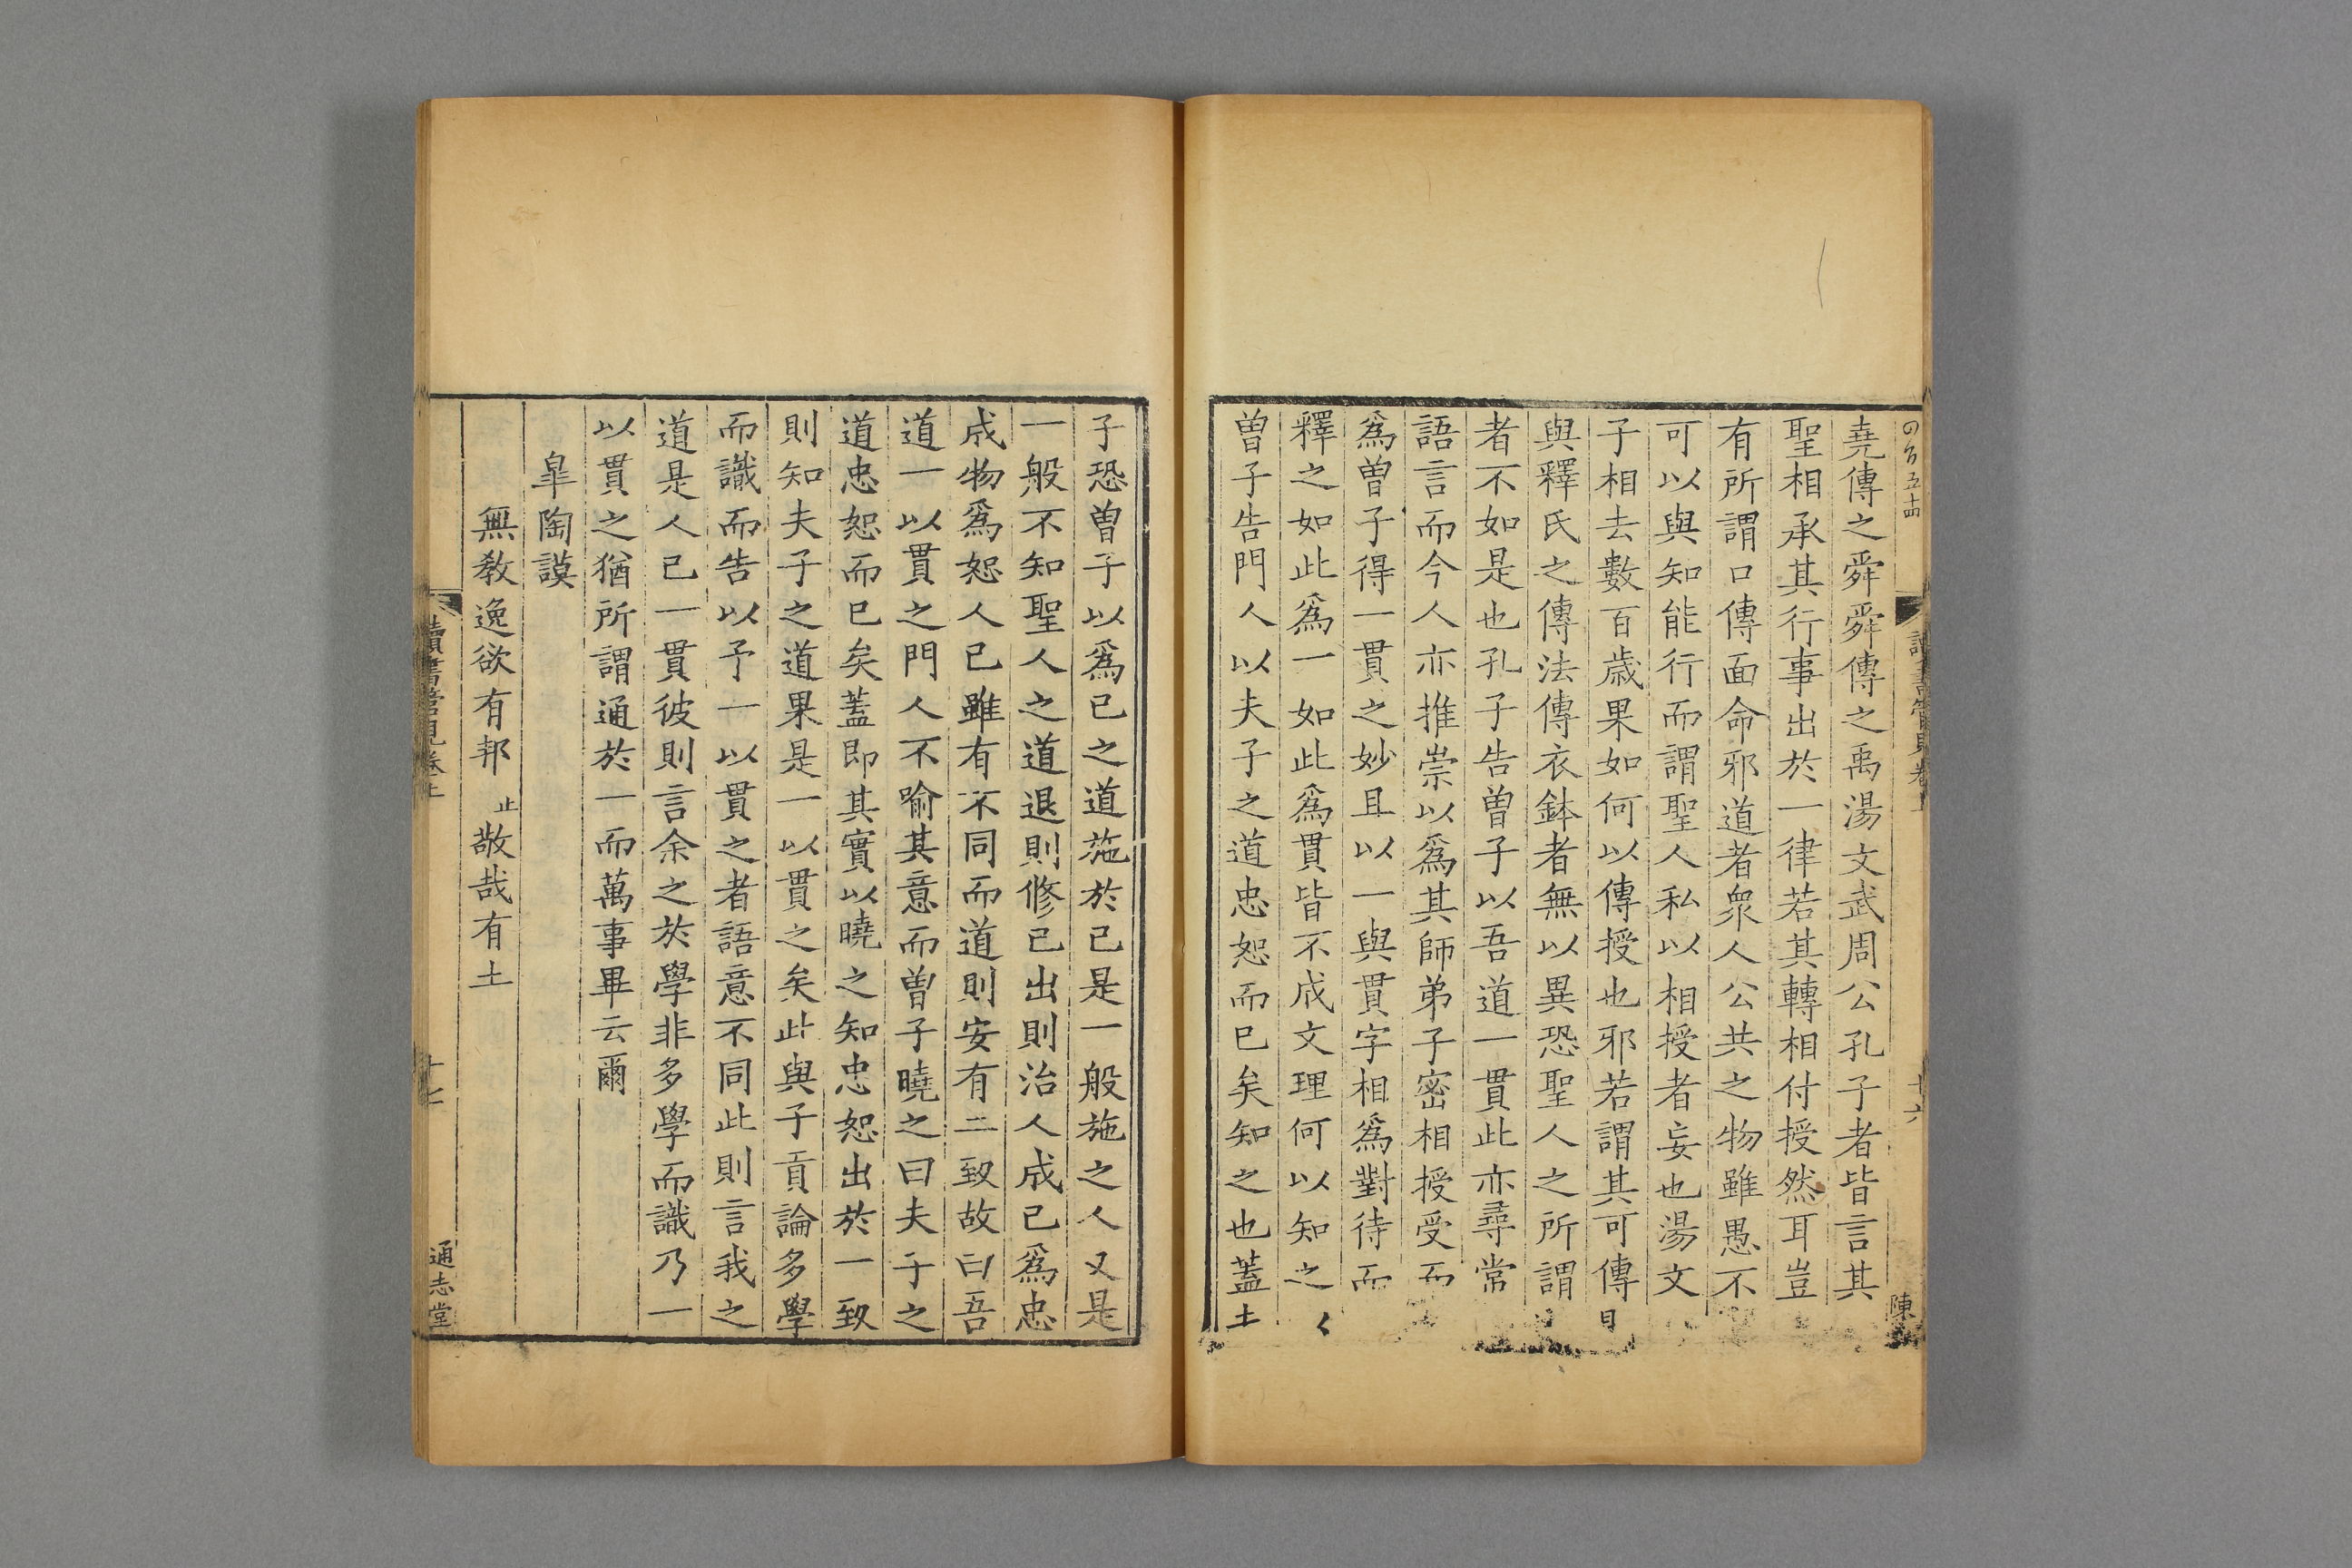 堯傳之舜舜傳之禹湯文武周公孔子者皆言其
聖相承其行事出於一律若其轉相付授然耳豈
有所謂口傳面命邪道者衆人公共之物雖愚不
可以與知能行而謂聖人私以相授者妄也湯文
子相去數百歲果如何以傳授也邪若謂其可傳
與釋氏之傳法傳衣鉢者無以異恐聖人之所謂
者不如是也孔子告曾子以吾道一貫此亦尋常
語言而今人亦推崇以爲其師弟子密相授受而
爲曾子得一貫之妙且以一與貫字相爲對待而
釋之如此爲一如此爲貫皆不成文理何以知之
曾子告門人以夫子之道忠恕而已矣知之也蓋
讀書管見卷上
十六
陳
子恐曾子以爲己之道施於己是一般施之人又是
一般不知聖人之道退則修己出則治人成己爲忠
成物爲恕人己雖有不同而道則安有二致故曰吾
道一以貫之門人不喻其意而曾子曉之曰夫子之
道忠恕而已矣蓋即其實以曉之知忠恕出於一致
則知夫子之道果是一以貫之矣此與子貢論多學
而識而告以予一以貫之者語意不同此則言我之
道是人己一貫彼則言余之於學非多學而識乃一
以貫之猶所謂通於一而萬事畢云爾
皐陶謨
無教逸欲有邦止敬哉有土
讀書管見卷上
十七
通志堂